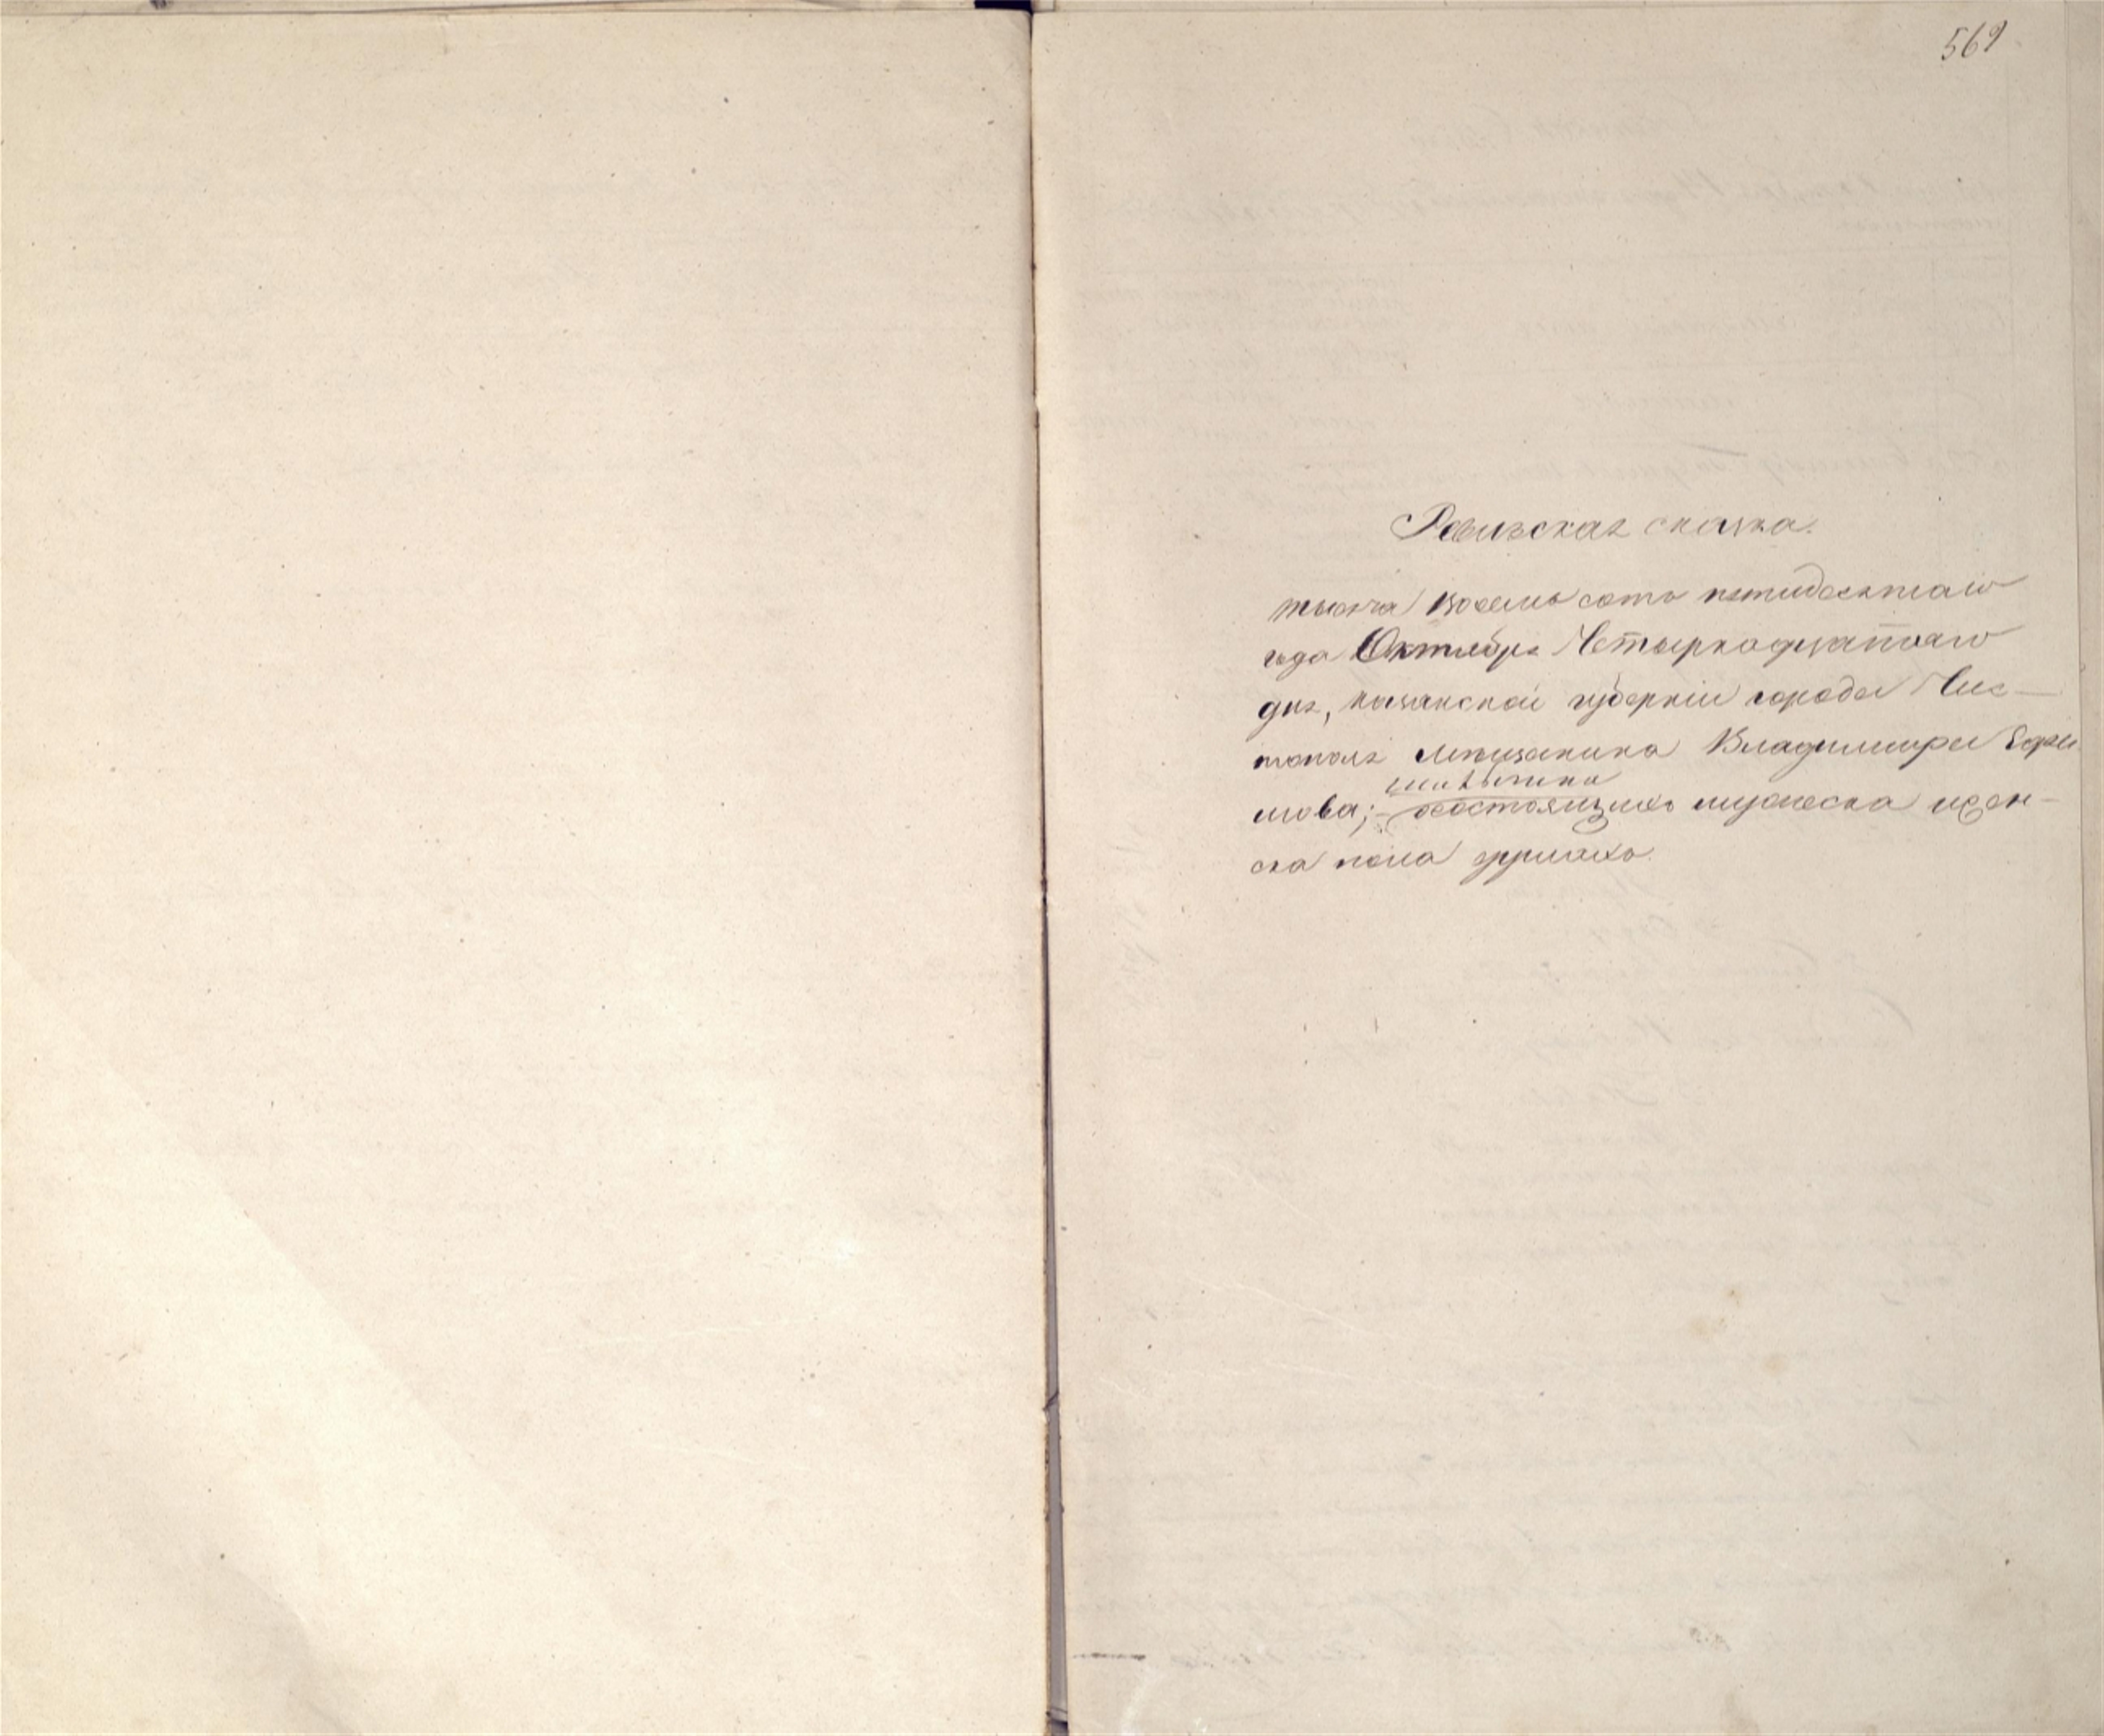 569
Ревизская сказка.
тысяча восемь сотъ пятидесятаго
года Октября Четырнадцатаго
дня, казанской губерніи города Чис-
тополя мѣщанина Владимира Ефи
мова;- осостоящихъ мужеска ижен-
ска пола душахъ.